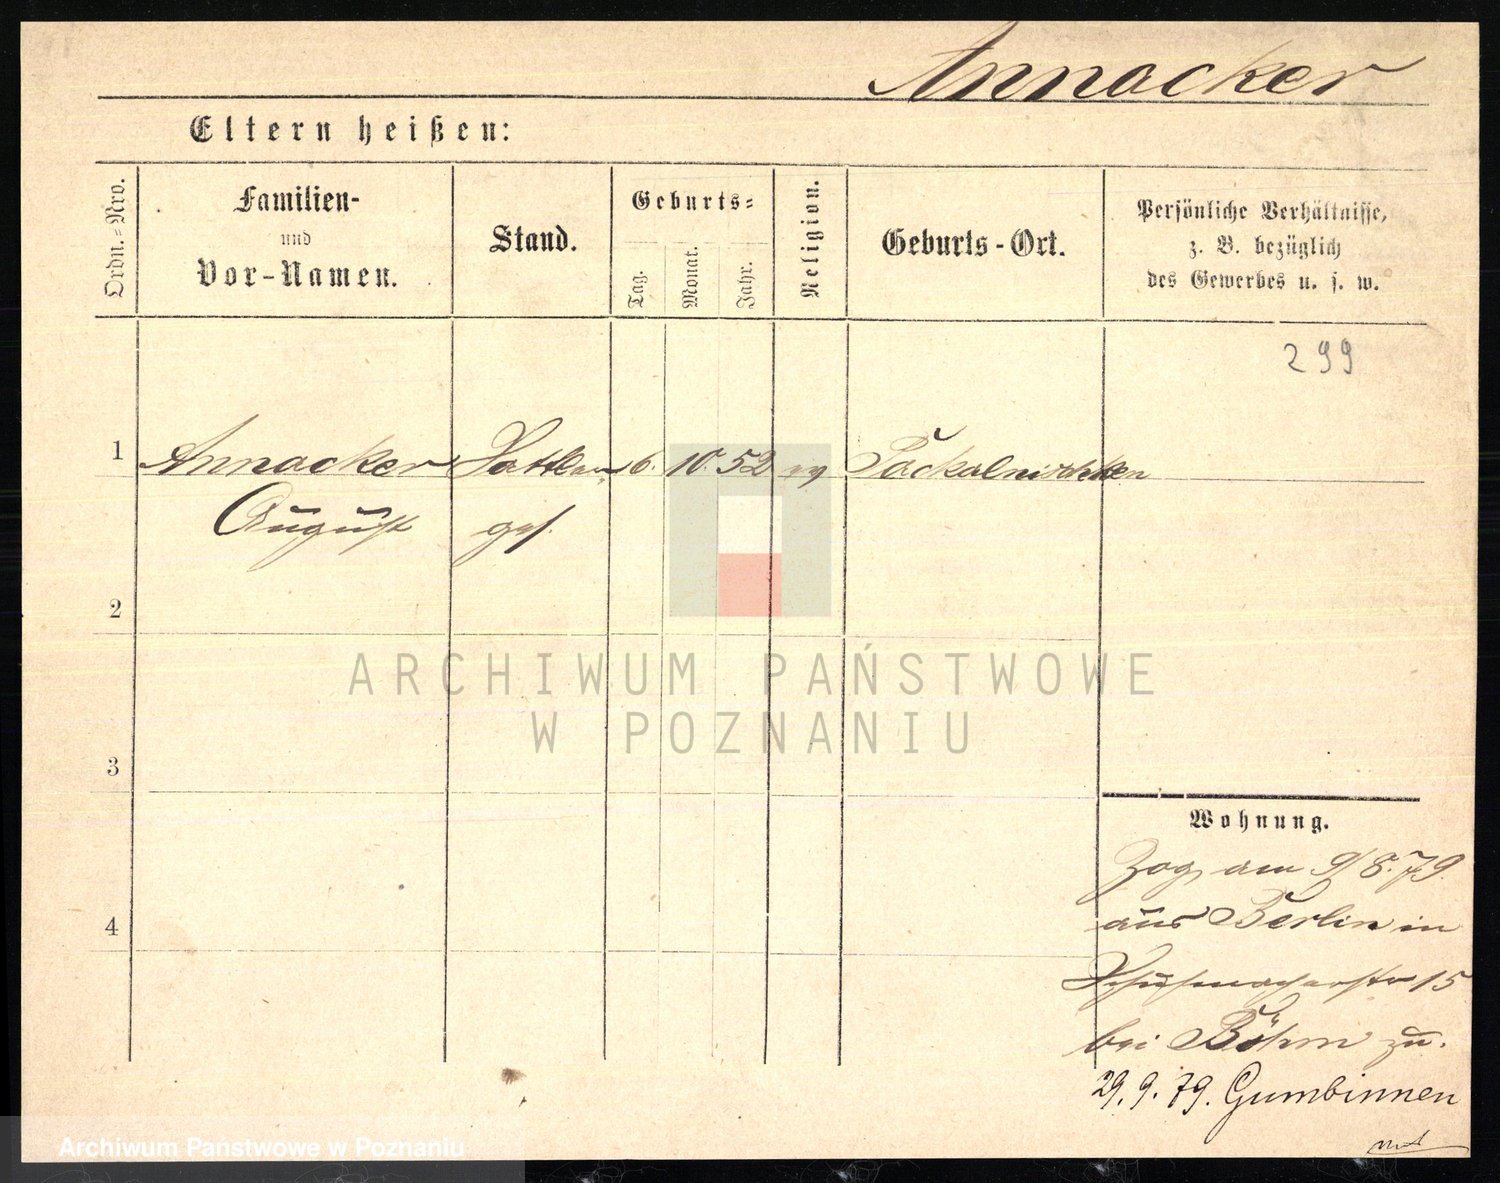 Annacker
Eltern heißen:
Ordn.=Nro.
Familien-
und
Vor-Namen.
Stand.
Geburts=
Tag.
Monat.
Jahr.
Religion.
Geburts-Ort.
Persönliche Verhältnisse,
z. B. bezüglich
des Gewerbes u. s. w.
299
1 Annacker Sattler 6. 10. 52 ev Packalnischken
August ges.
2
3
4
ARCHIWUM PAŃSTWOWE
W POZNANIU
Wohnung.
Zog am 9/8.79.
aus Berlin in
Schuhmacherstr 15
bei Böhm zu.
29.9.79. Gumbinnen
Archiwum Państwowe w Poznaniu